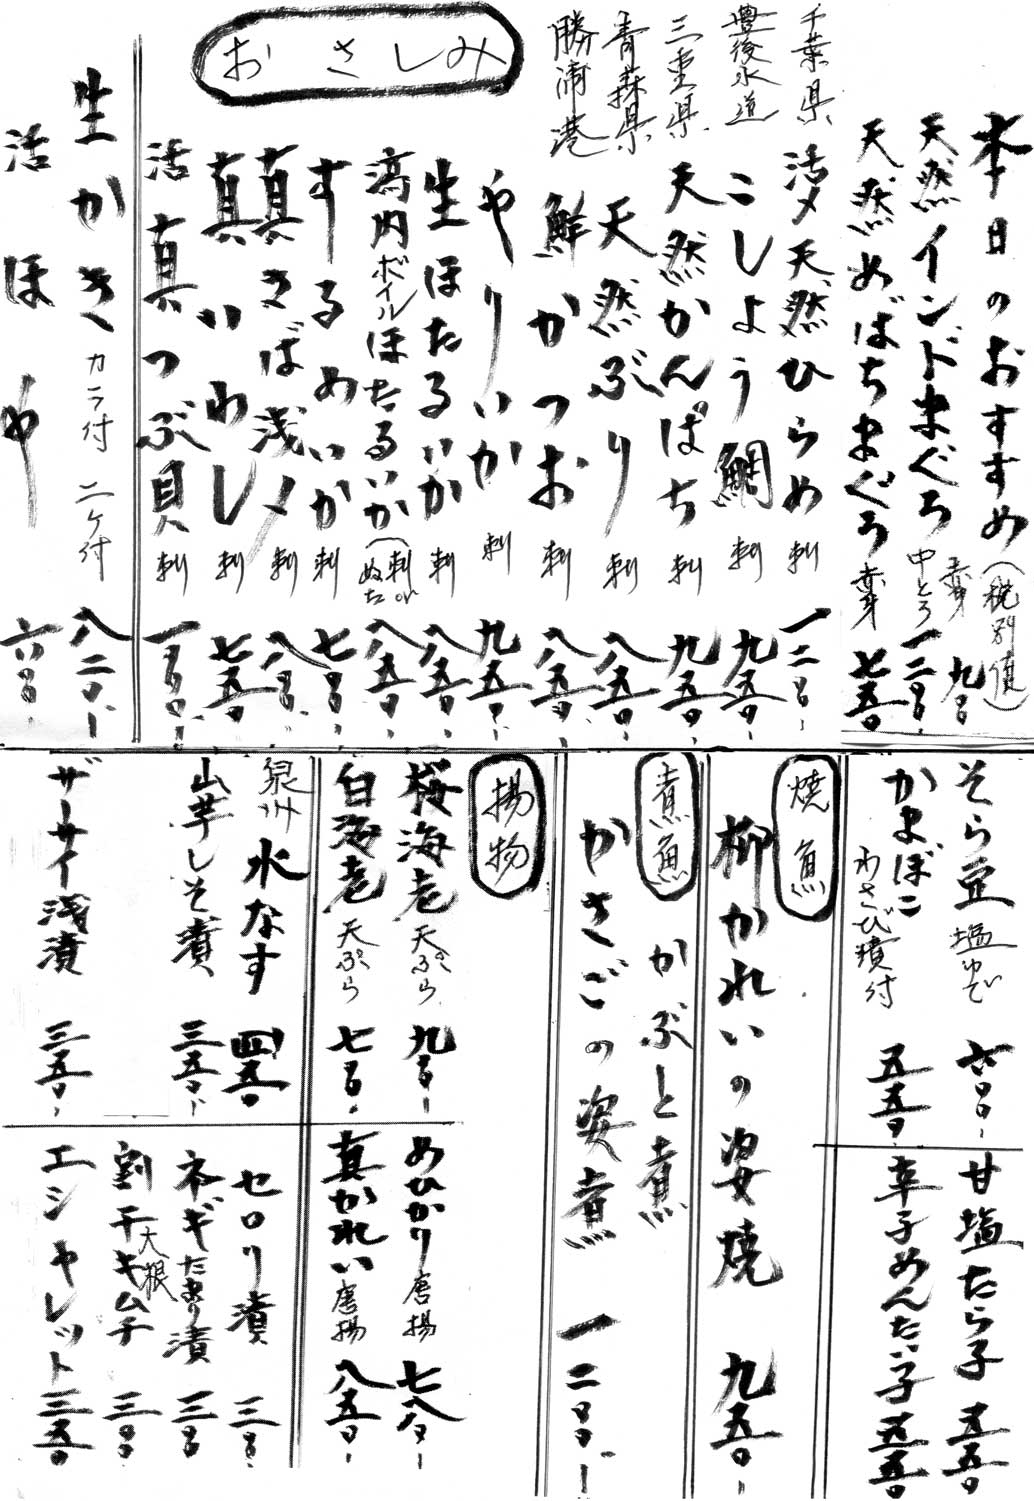 本日のおすすめ(税別価)
天然インドまぐろ 赤身 九〇〇
中とろ 一二〇〇
天然めばちまぐろ 赤身 七五〇
おさしみ
千葉県 活〆天然ひらめ 刺 一二〇〇-
豊後水道 こしょう鯛 刺 九五〇-
三重県 天然かんぱち 刺 九五〇-
青森県 天然ぶり 刺 八五〇-
勝浦港 鮮かつお 刺 八五〇-
やりいか 刺 九五〇-
生ほたるいか 刺 八五〇-
湾内ボイルほたるいか(刺 or ぬた 八五〇
するめいか 刺 七〇〇-
真さば浅〆 刺 八〇〇-
真いわし 刺 七五〇
活真つぶ貝 刺
生かき カラ付 二ケ付 八二〇-
活ほや 六〇〇-
そら豆 塩ゆで 六〇〇-
かまぼこ わさび漬付 五五〇-
甘塩たら子 五五〇
辛子めんたい子 五五〇
焼魚
柳かれいの姿焼 九五〇-
煮魚
かぶと煮
かさごの姿煮 一二〇〇-
揚物
桜海老 天ぷら 九〇〇-
白海老 天ぷら 七〇〇-
めひかり 唐揚 七八〇-
真かれい 唐揚 八五〇-
泉州 水なす 四五〇
山芋しそ漬 三五〇-
ザーサイ浅漬 三五〇-
セロリ漬 三〇〇-
ネギたまり漬 三〇〇
割干大根キムチ 三〇〇-
エシャレット 三五〇